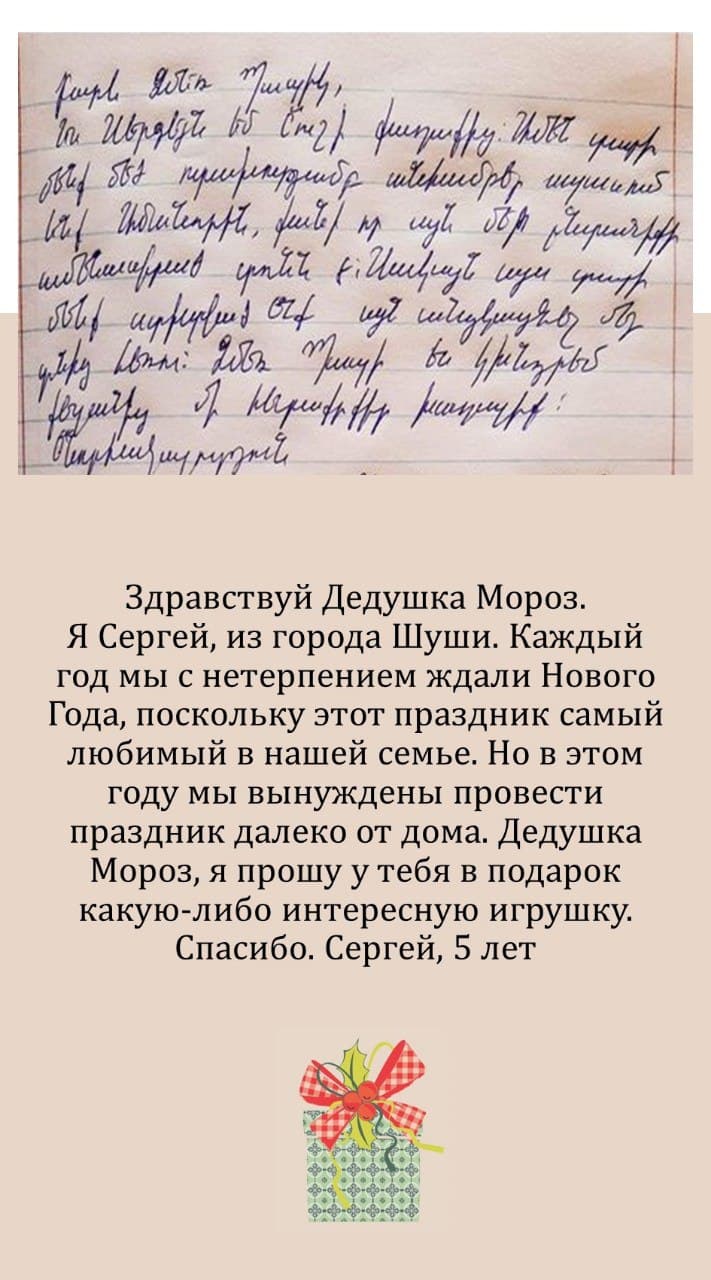 Բարև Ձմեռ Պապիկ,
Ես Սերգեյն եմ Շուշի քաղաքից: Ամեն տարի
մենք մեծ ուրախությամբ անհամբեր սպասում
ենք Ամանորին, քանի որ այն մեր ընտանիքի
ամենասիրված տոնն է: Սակայն այս տարի
մենք ստիպված ենք այն անցկացնել մեր
տնից հեռու: Ձմեռ Պապի ես կխնդրեմ
քեզանից մի հետաքրքիր խաղալիք:
Շնորհակալություն
Здравствуй Дедушка Мороз.
Я Сергей, из города Шуши. Каждый
год мы с нетерпением ждали Нового
Года, поскольку этот праздник самый
любимый в нашей семье. Но в этом
году мы вынуждены провести
праздник далеко от дома. Дедушка
Мороз, я прошу у тебя в подарок
какую-либо интересную игрушку.
Спасибо. Сергей, 5 лет